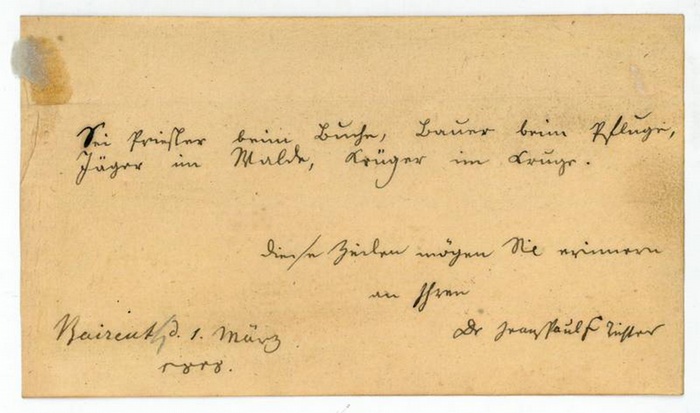 Sei Priester beim Buche, Bauer beim Pfluge,
Jäger im Walde, Krüger im Kruge.
diese Zeilen mögen Sie erinnern
an Ihren
Baireuth d. 1. März
Dr Jean Paul Fr Richter